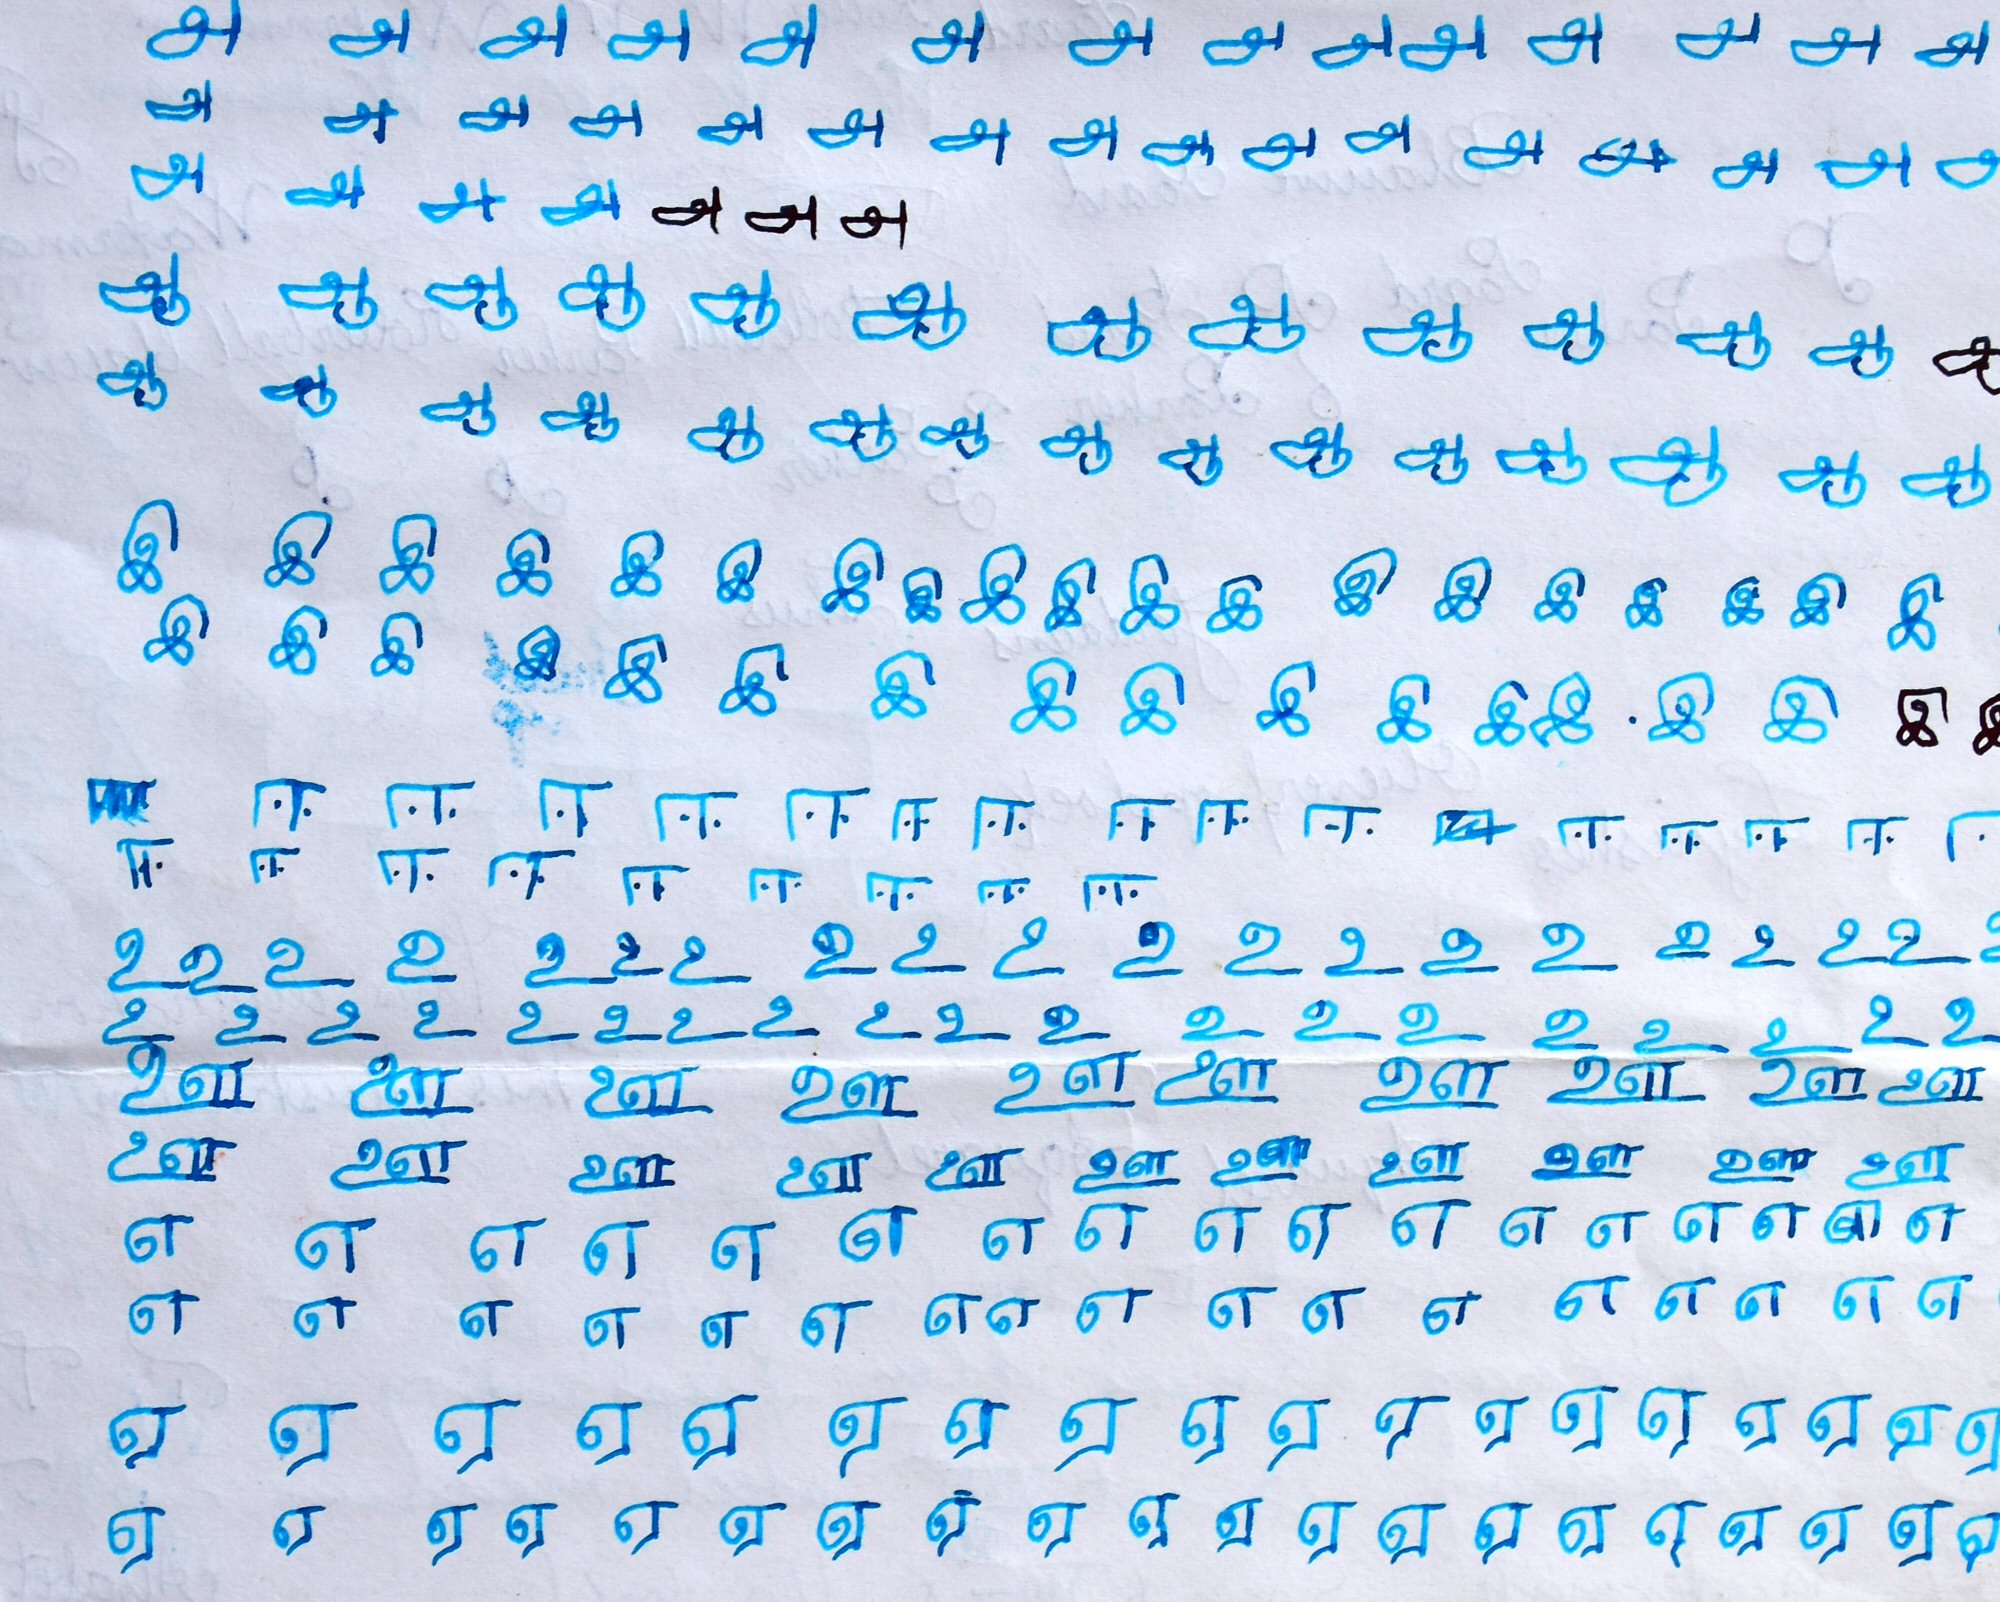 அ அ அ அ அ அ அ அ அ அ அ அ அ அ
அ அ அ அ அ அ அ அ அ அ அ அ அ அ அ
அ அ அ அ அ அ அ
ஆ ஆ ஆ ஆ ஆ ஆ ஆ ஆ ஆ ஆ ஆ ஆ
ஆ ஆ ஆ ஆ ஆ ஆ ஆ ஆ ஆ ஆ ஆ ஆ ஆ ஆ ஆ
இ இ இ இ இ இ இ இ இ இ இ இ இ இ இ இ இ இ இ
இ இ இ இ இ இ இ இ இ இ இ இ இ இ இ இ இ
ஈ ஈ ஈ ஈ ஈ ஈ ஈ ஈ ஈ ஈ ஈ ஈ ஈ ஈ
ஈ ஈ ஈ ஈ ஈ ஈ ஈ ஈ ஈ
உ உ உ உ உ உ உ உ உ உ உ உ உ உ உ உ உ உ உ உ
உ உ உ உ உ உ உ உ உ உ உ உ உ உ உ உ உ உ உ
ஊ ஊ ஊ ஊ ஊ ஊ ஊ ஊ ஊ ஊ
ஊ ஊ ஊ ஊ ஊ ஊ ஊ ஊ ஊ ஊ ஊ
எ எ எ எ எ எ எ எ எ எ எ எ எ எ எ எ எ
எ எ எ எ எ எ எ எ எ எ எ எ எ எ எ எ எ
ஏ ஏ ஏ ஏ ஏ ஏ ஏ ஏ ஏ ஏ ஏ ஏ ஏ ஏ ஏ ஏ ஏ ஏ
ஏ ஏ ஏ ஏ ஏ ஏ ஏ ஏ ஏ ஏ ஏ ஏ ஏ ஏ ஏ ஏ ஏ ஏ ஏ ஏ